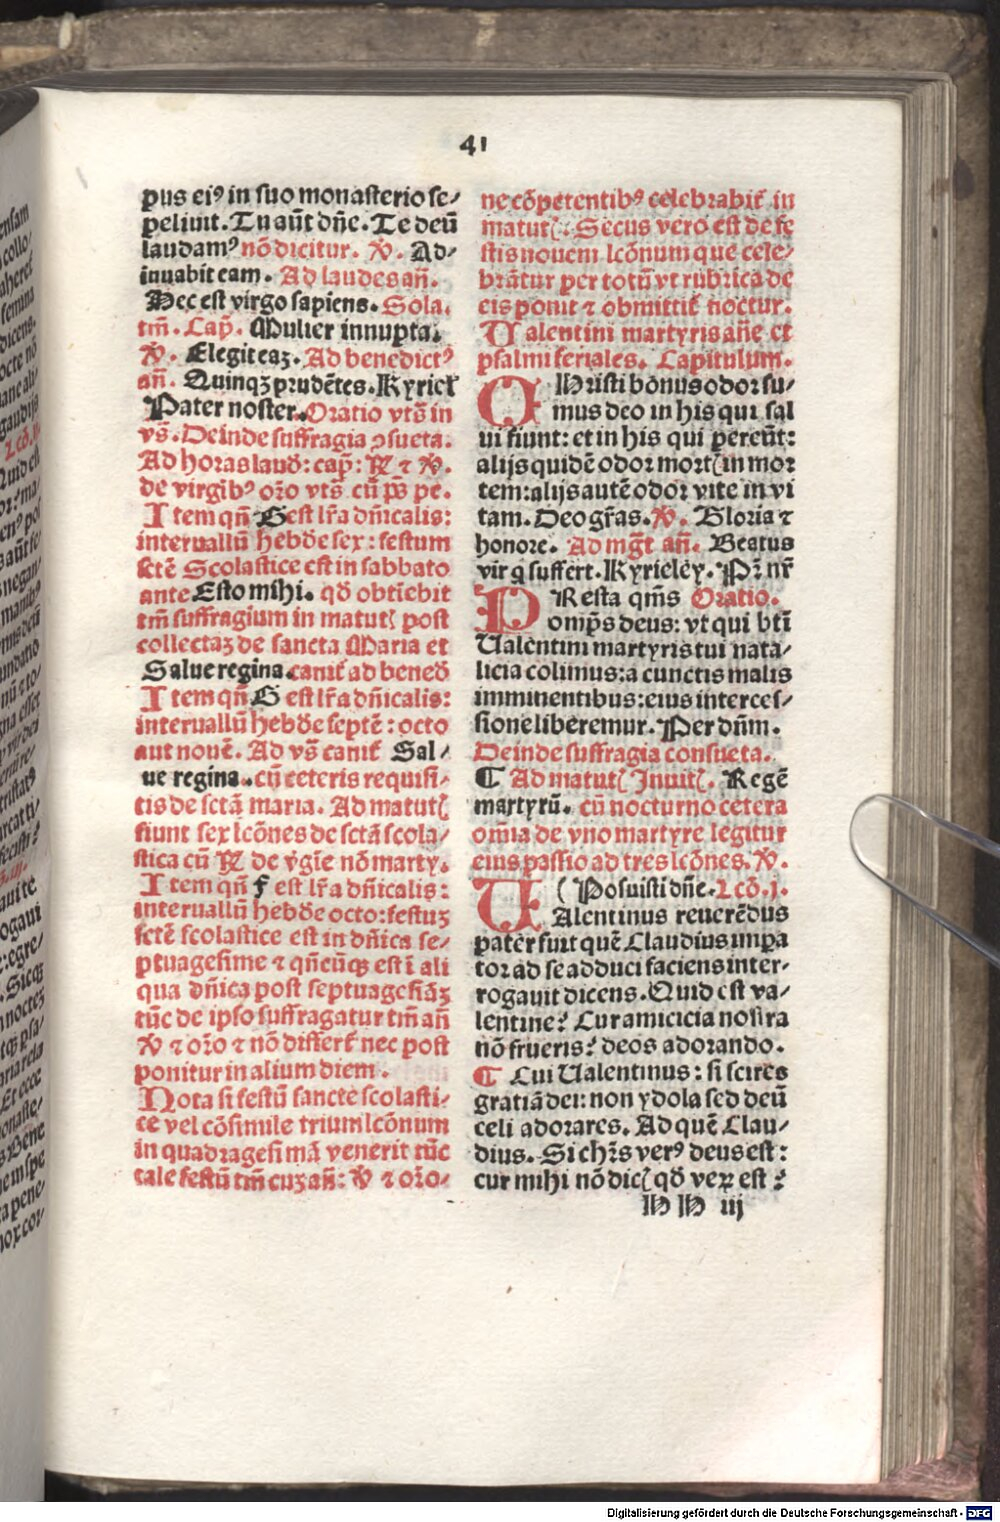 41
pus eiꝰ in suo monasterio se⸗
peliuit. Tu aūt dn̄e. Te deū
laudamꝰ nō dicitur. ℣. Ad⸗
iuuabit eam. Ad laudes an̄.
Hec est virgo sapiens. Sola.
tm̄. Cap̄. Mulier innupta.
℣. Elegit eaꝫ. Ad benedictꝰ
an̄. Quinqꝫ prudētes. Kyriel̄
Pater noster. Oratio vts̄ in
vs̄. Deinde suffragia ꝯsueta.
Ad horas laud̄: cap̄: ℟ ⁊ ℣.
de virgibꝰ oꝛo vts̄ cū ps̄ pe.
Item qn̄ G est lr̄a dn̄icalis:
interuallū hebd̄e sex: festum
sctē Scolastice est in sabbato
ante Esto mihi. qd̄ obtinebit
tm̄ suffragium in matut᷒ post
collectaꝫ de sancta Maria et
Salue regina. canit᷒ ad bened̄
Item qn̄ G est lr̄a dn̄icalis:
interuallū hebd̄e septē: octo
aut nouē. Ad vs̄ canit᷒ Sal⸗
ue regina. cū ceteris requisi⸗
tis de sctā maria. Ad matut᷒
fiunt sex lcōnes de sctā scola⸗
stica cū ℟ de v̄gīe nō marty.
Item qn̄ f est lr̄a dn̄icalis:
interuallū hebd̄e octo: festuꝫ
sctē scolastice est in dn̄ica se⸗
ptuagesime ⁊ qn̄cūqꝫ est ī ali
qua dn̄ica post septuagesimāꝫ
tūc de ipso suffragatur tm̄ an̄
℣ ⁊ oꝛo ⁊ nō differt᷒ nec post
ponitur in alium diem.
Nota si festū sancte scolasti⸗
ce vel cōsimile trium lcōnum
in quadragesimā venerit tūc
tale festū tm̄ cuꝫ an̄: ℣ ⁊ oꝛo⸗
ne cōpetentibꝰ celebrabit᷒ in
matut᷒. Secus vero est de fe
stis nouem lcōnum que cele⸗
brātur per totū vt rubrica de
eis ponit ⁊ obmittit᷒ noctur.
Ualentini martyris an̄e et
psalmi feriales. Capitulum.
CHristi bonus odor su⸗
mus deo in his qui sal
ui fiunt: et in his qui pereūt:
alijs quidē odor mort᷒ in mor
tem: alijs autē odor vite in vi
tam. Deo gr̄as. ℣. Gloria ⁊
honore. Ad mgt̄ an̄. Beatus
vir q suffert. Kyrieley. Pr̄ nr̄
PResta qm̄s Oratio.
omp̄s deus: vt qui bt̄i
Ualentini martyris tui nata⸗
licia colimus: a cunctis malis
imminentibus: eius interces⸗
sione liberemur. Per dn̄m.
Deinde suffragia consueta.
¶ Ad matut᷒ Inuit᷒. Regē
martyrū. cū nocturno cetera
om̄ia de vno martyre legitur
eius passio ad tres lcōnes. ℣.
( Posuisti dn̄e. Lcō. j.
UAlentinus reuerēdus
pater fuit quē Claudius impa
tor ad se adduci faciens inter⸗
rogauit dicens. Quid est va⸗
lentine? Cur amicicia nostra
nō frueris? deos adorando.
¶ Cui Ualentinus: si scires
gratiā dei: non ydola sed deū
celi adorares. Ad quē Clau⸗
dius. Si chr̄s verꝰ deus est:
cur mihi nō dic᷒ qd̄ veꝝ est?
HH iij
Digitalisierung gefördert durch die Deutsche Forschungsgemeinschaft - DFG